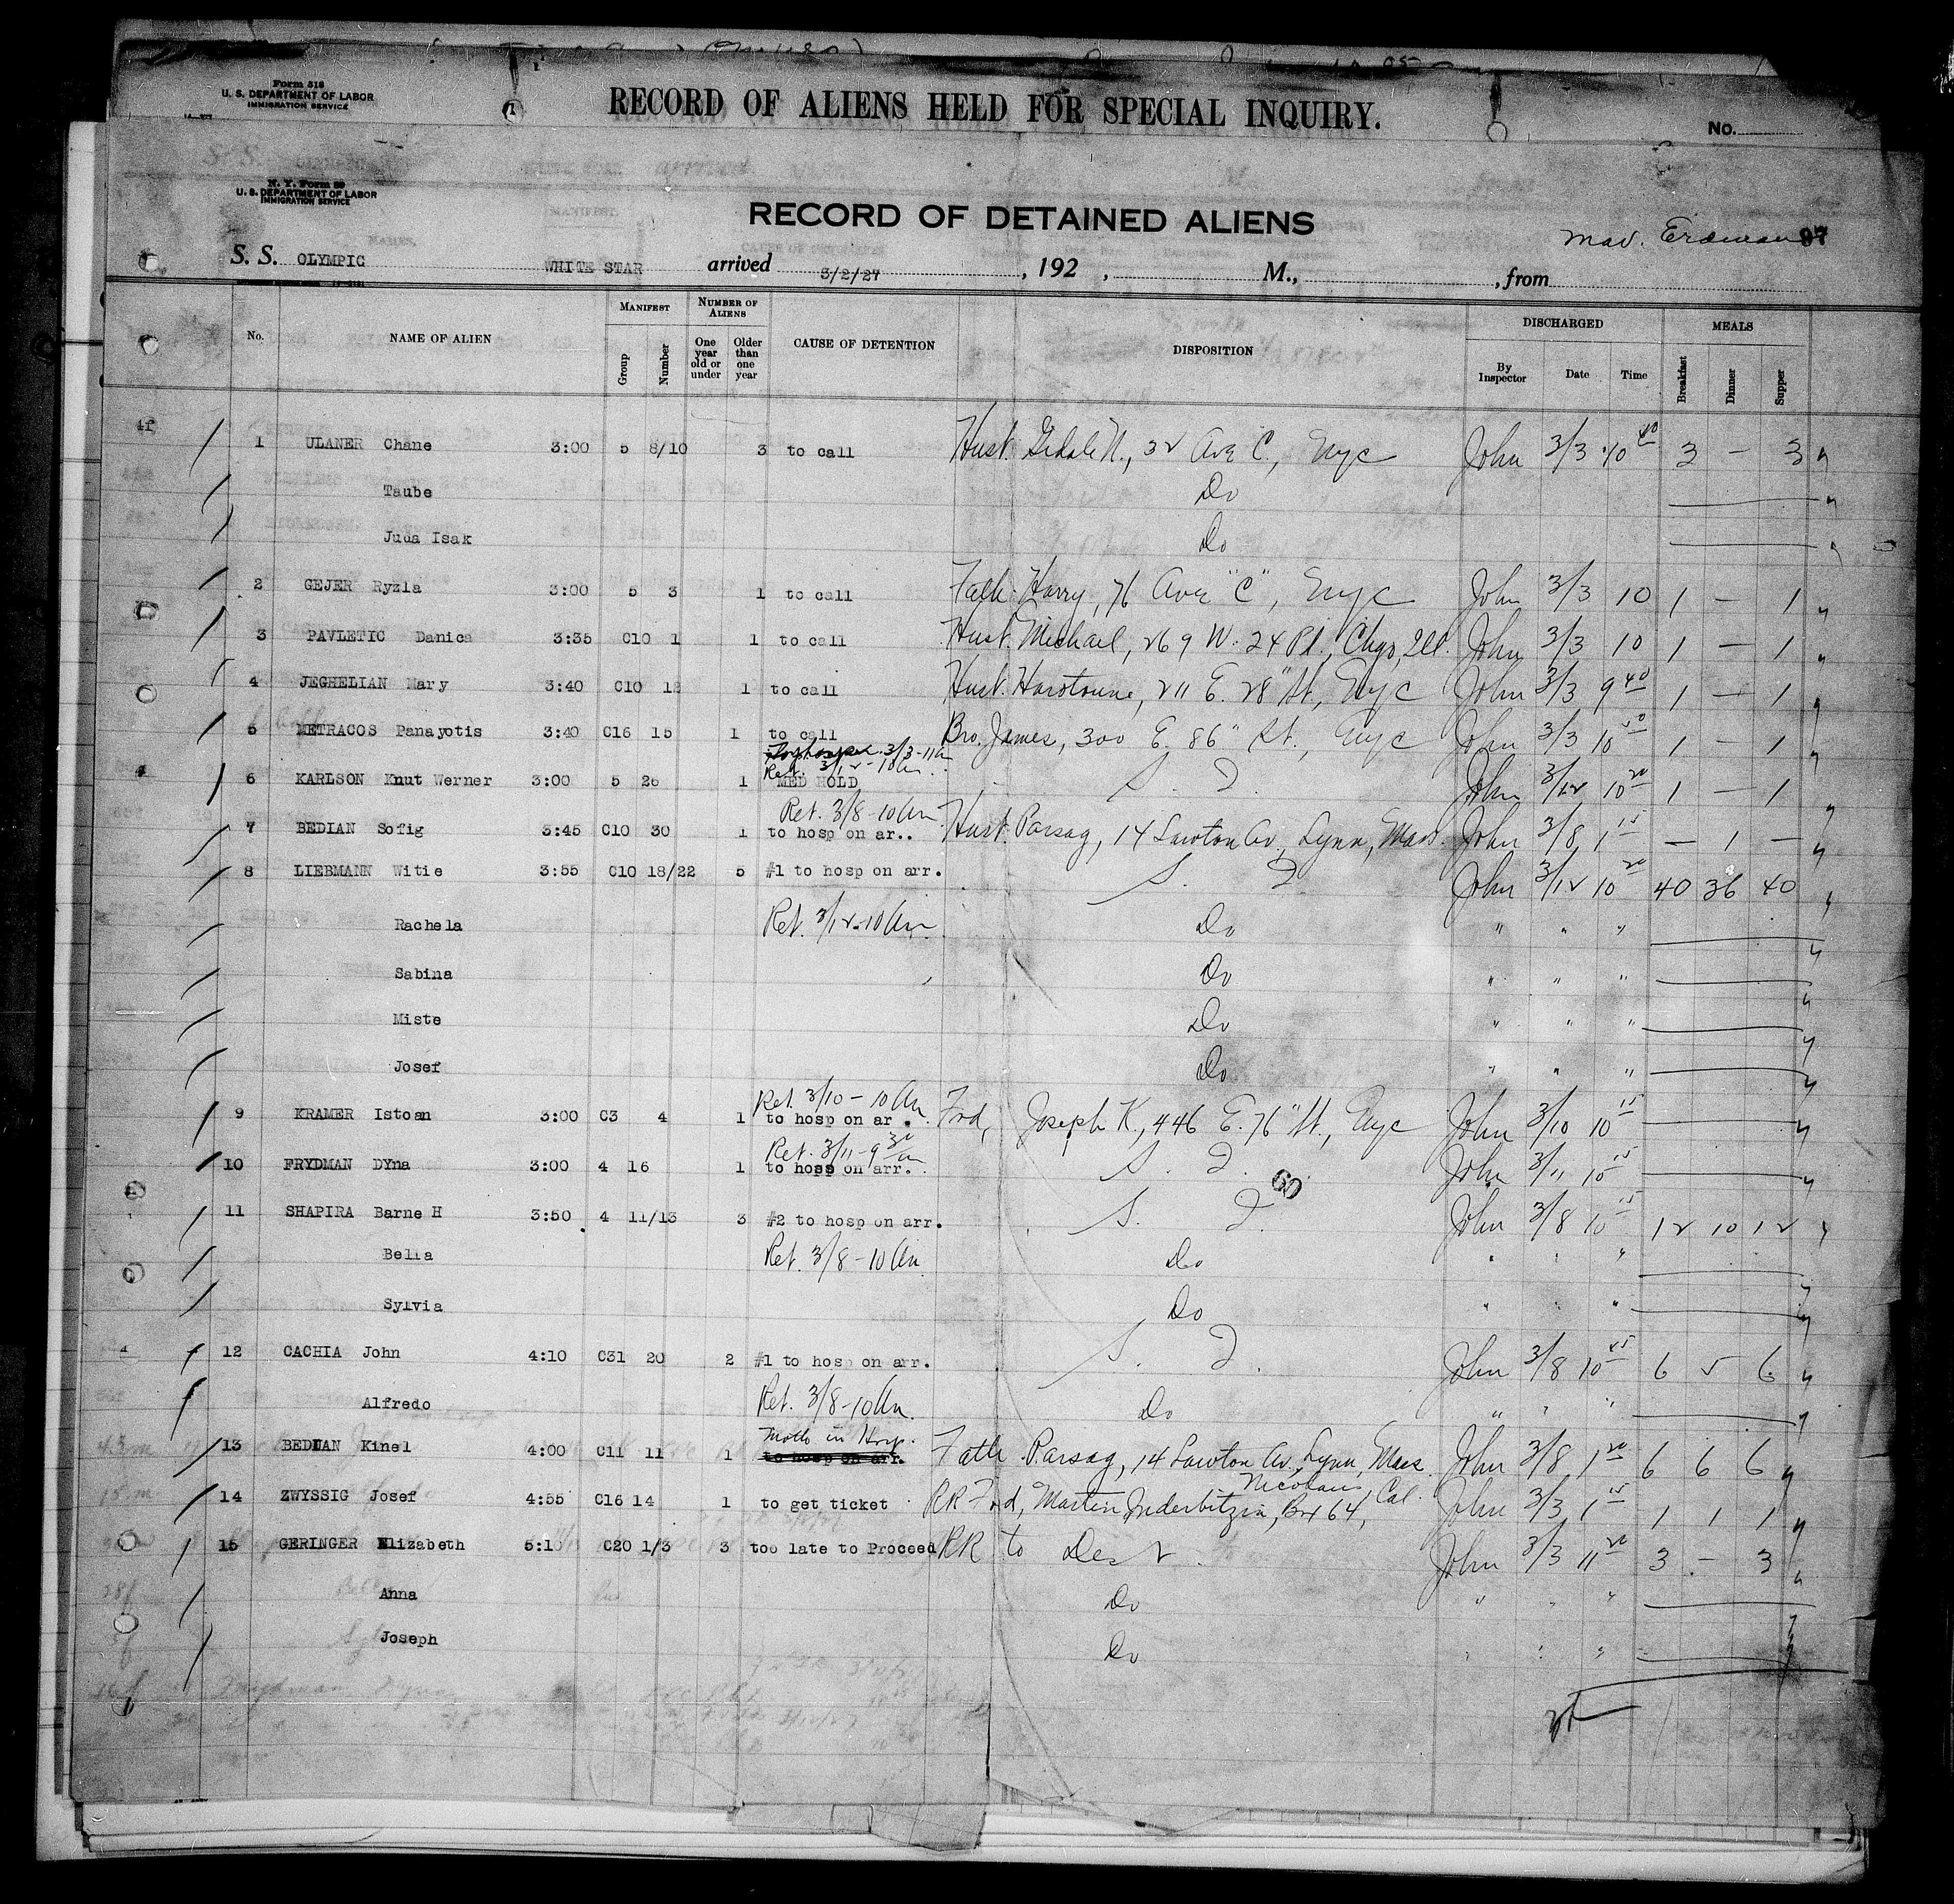 Form 518
U. S. DEPARTMENT OF LABOR
IMMIGRATION SERVICE
RECORD OF ALIENS HELD FOR SPECIAL INQUIRY.
No.
U. S. DEPARTMENT OF LABOR
IMMIGRATION SERVICE
RECORD OF DETAINED ALIENS
S. S. OLYMPIC WHITE STAR arrived 3/2/27, 192 , M., , from
No. NAME OF ALIEN MANIFEST Group Number NUMBER OF ALIENS One year old or under Older than one year CAUSE OF DETENTION DISPOSITION DISCHARGED By Inspector Date Time MEALS Breakfast Dinner Supper
1 ULANER Chane 3:00 5 8/10 3 to call Husb. 32 Ave C., NYC John 3/3 10 40 3 — 3
Taube Do
Juda Isak Do
2 GEJER Ryzla 3:00 5 3 1 to call Fath Harry, 76 Ave "C", NYC John 3/3 10 1 — 1
3 PAVLETIC Danica 3:35 C10 1 1 to call Husb. Michael, 269 W. 24 Pl., Chgo, Ill. John 3/3 10 1 — 1
4 JEGHELIAN Mary 3:40 C10 12 1 to call Husb. Harotoune, 211 E. 28" St., NYC John 3/3 9 40 1 — 1
5 METRACOS Panayotis 3:40 C16 15 1 to call Bro. James, 300 E. 86" St., NYC John 3/3 10 50 1 1
3/3-11A
Ret. 3/12-10Am
6 KARLSON Knut Werner 3:00 5 26 1 MED HOLD S. I. John 3/12 10 20 1 — 1
Ret. 3/8-10Am
7 BEDIAN Sofig 3:45 C10 30 1 to hosp on ar.. Husb. Parsag, 14 Lawton Av., Lynn, Mass. John 3/8 1 15 — 1 —
8 LIEBMANN Witie 3:55 C10 18/22 5 #1 to hosp on arr. S. I. John 3/12 10 20 40 36 40
Rachela Ret. 3/12-10Am Do " " "
Sabina Do " " "
Miste Do " " "
Josef Do " " "
Ret. 3/10-10Am
9 KRAMER Istoan 3:00 C3 4 1 to hosp on ar. Frd, Joseph K., 446 E. 76" St., NYC John 3/10 10 15
Ret. 3/11-9 30 am
10 FRYDMAN DYna 3:00 4 16 1 to hosp on arr. S. I. John 3/11 10 15
60
11 SHAPIRA Barne H 3:50 4 11/13 3 #2 to hosp on arr. S. I. John 3/8 10 15 12 10 12
Bella Ret. 3/8-10Am Do " " "
Sylvia Do " " "
12 CACHIA John 4:10 C31 20 2 #1 to hosp on arr. S. I. John 3/8 10 45 6 5 6
Alfredo Ret. 3/8-10Am. Do " " "
Moth in Hosp.
13 BEDUAN Kinel 4:00 C11 11 1 to hosp on arr. Fath Parsag, 14 Lawton Av., Lynn, Mass. John 3/8 1 20 6 6 6
14 ZWYSSIG Josef 4:55 C16 14 1 to get ticket RR Frd, Martin Inderbitzin, Box 64, Nicolaus, Cal. John 3/3 1 15 1 1 1
15 GERINGER Elizabeth 5:10 C20 1/3 3 too late to Proceed RR to Dest. John 3/3 11 20 3 — 3
Anna Do " " "
Joseph Do " " "